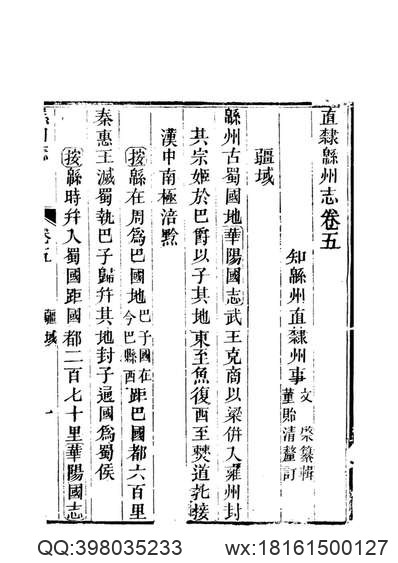 直隸緜州志卷五
知緜州直隸州事文棨纂輯
董貽清釐訂
疆域
緜州古蜀國地華陽國志武王克商以梁併入雍州封
其宗姬於巴爵以子其地東至魚復西至僰道北接
漢中南極涪黔
按緜在周爲巴國地巴子國在今巴縣西距巴國都六百里
秦惠王滅蜀執巴子歸幷其地封子通國爲蜀侯
按緜時幷入蜀國距國都二百七十里華陽國志
卷五
疆域
一
QQ:398035233
wx:18161500127